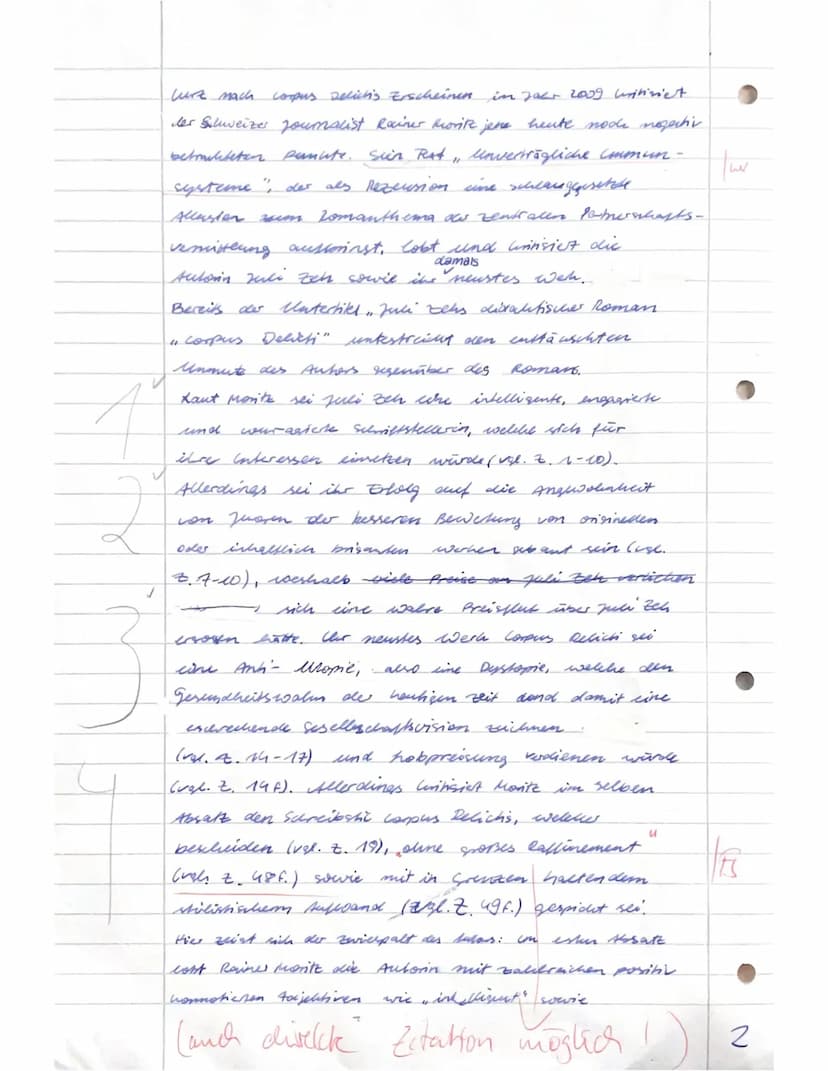 kurz nach Corpus Delictis Erscheinen im Jahr 2009 kritisiert
der Schweizer Journalist Rainer Moritz jene heute noch negativ
betrachteten Punkte. Sein Text „Unverträgliche Immun-
systeme“, der als Rezension eine
Allusion zum Romanthema der zentralen Partnerschafts-
vermittlung aufbringt, lobt und kritisiert die
damals
Autorin Juli Zeh sowie ihr neustes Werk.
Bereits der Untertitel „Juli Zehs didaktischer Roman
„Corpus Delicti“ unterstreicht den enttäuschten
Unmute des Autors gegenüber des Romans.
1
Laut Moritz sei Juli Zeh eine intelligente, engagierte
und couragierte Schriftstellerin, welche sich für
ihre Interessen einsetzen würde (vgl. Z. 1-10).
2
Allerdings sei ihr Erfolg auf die Angewohnheit
von Juroren der besseren Bewertung von originellen
oder inhaltlich brisanten Werken gebaut sein (vgl.
Z. 7-10), weshalb viele Preise an Juli Zeh verliehen
sich eine wahre Preisflut über Juli Zeh
3
ergossen hätte. Ihr neustes Werk Corpus Delicti sei
eine Anti-Utopie, also eine Dystopie, welche den
Gesundheitswahn der heutigen Zeit und damit eine
erschreckende Gesellschaftsvision zeichnen
(vgl. Z. 14-17) und Lobpreisung verdienen würde
4
(vgl. Z. 14 f.). Allerdings kritisiert Moritz im selben
Absatz den Schreibstil Corpus Delictis, welcher
bescheiden (vgl. Z. 19), „ohne großes Raffinement“
(vgl. Z. 48 f.) sowie mit in Grenzen haltendem
stilistischem Aufwand (vgl. Z. 49 f.) gespickt sei.
Hier zeigt sich der Zwiespalt des Autors: im ersten Absatz
lobt Rainer Moritz die Autorin mit zahlreichen positiv
konnotierten Adjektiven wie „intelligent“ sowie
(auch direkte Zitation möglich!)
2